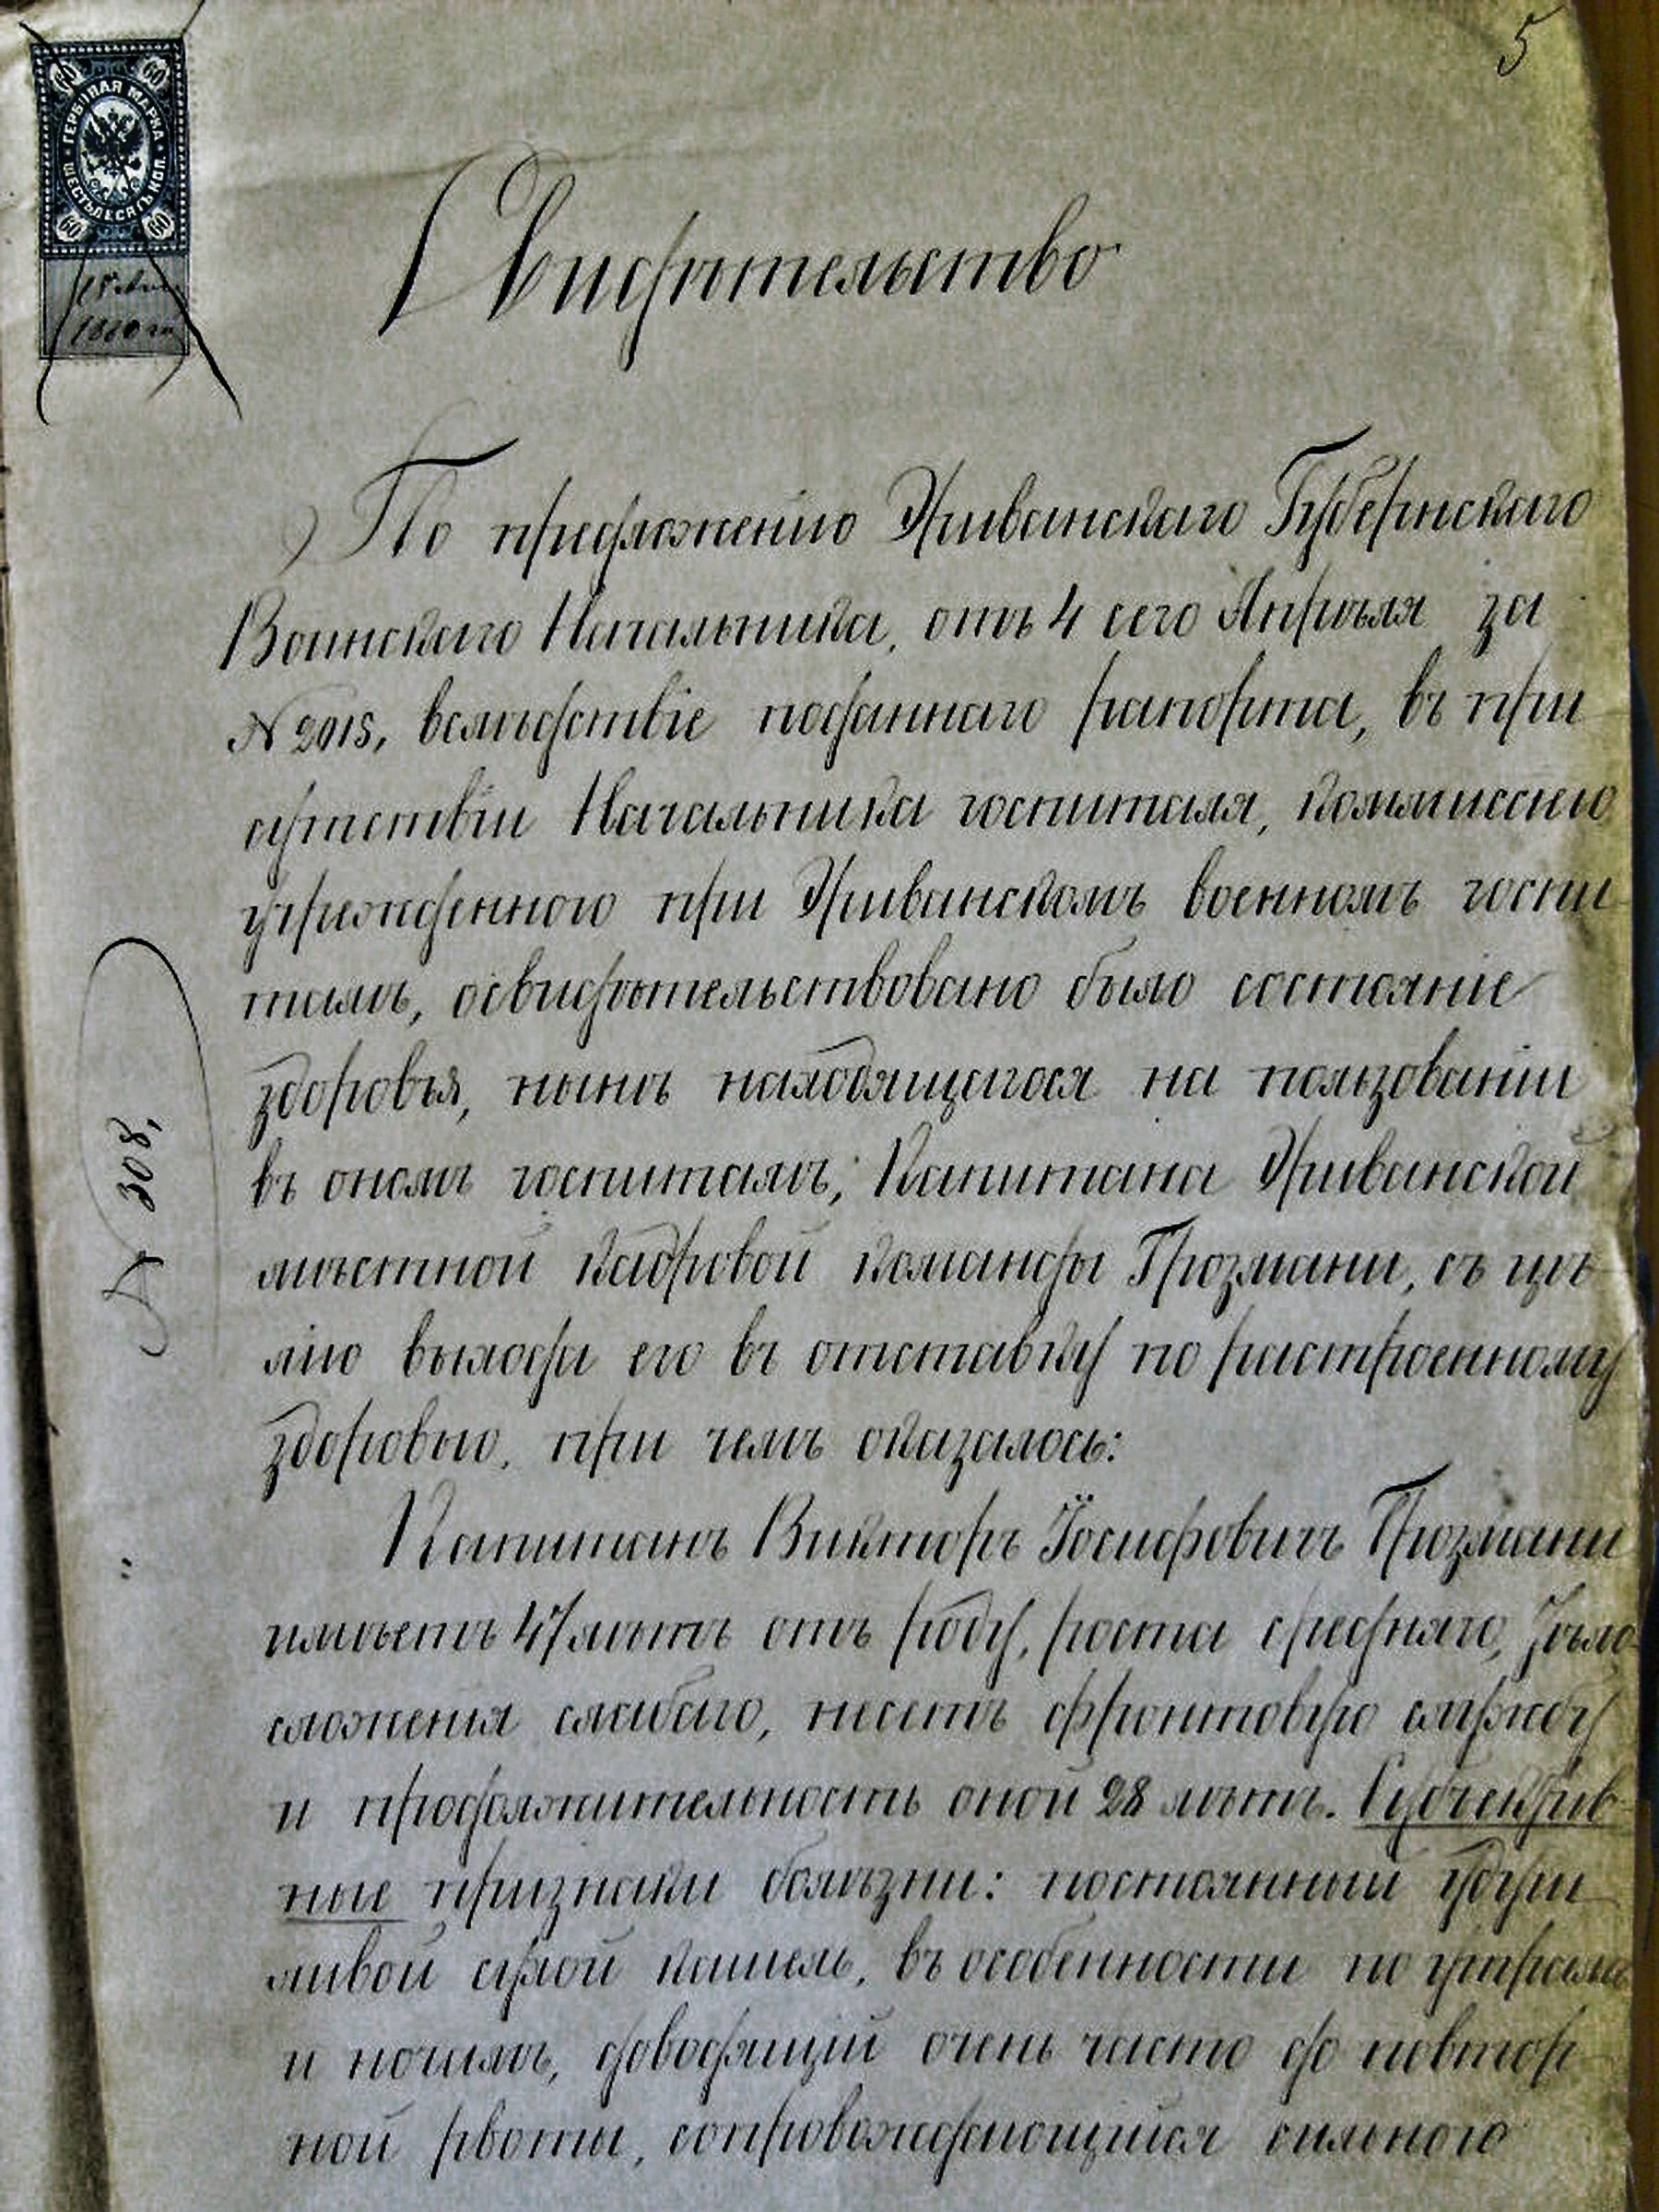 5
60 60
ГЕРБОВАЯ МАРКА
ШЕСТЬДЕСЯТЪ КОП.
60 60
Свидѣтельство
По предложенію Эриванскаго Губернскаго
Воинскаго Начальника, отъ 4 сего Апрѣля за
№ 2015, вслѣдствіе поданнаго рапорта, въ при
сутствіи Начальника госпиталя, коммиссією
учрежденною при Эриванскомъ военномъ госпи
талѣ, освидѣтельствовано было состояніе
здоровья, нынѣ находящагося на пользованіи
въ ономъ госпиталѣ, Капитана Эриванской
мѣстной кадровой команды Грозмани, съ цѣ
лію выхода его въ отставку по растроенному
здоровью, при чемъ оказалось:
Капитанъ Викторъ Іосифовичъ Грозмани
имѣетъ 47 лѣтъ отъ роду, роста средняго, тѣло
сложенія слабаго, несетъ фронтовую службу
и продолжительность оной 28 лѣтъ. Субъектив
ные признаки болѣзни: постоянный удуш
ливой сухой кашель, въ особенности по утрамъ
и ночамъ, доводящій очень часто до повтор
ной рвоты, сопровождающійся сильною
№ 308,